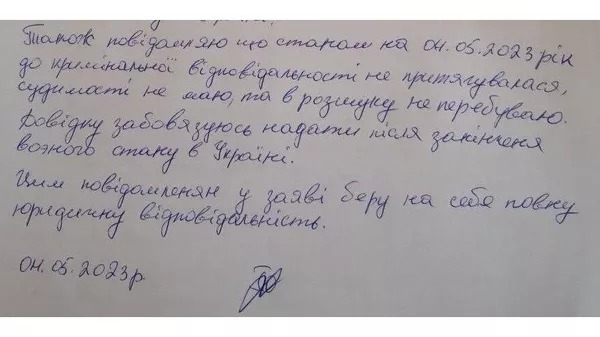 Також повідомляю що станом на 04.05.2023 рік
до кримінальної відповідальності не притягувалася,
судимості не маю, та в розшуку не перебуваю.
Довідку забовязуюсь надати після закінченя
воэного стану в Україні.
Цим повідомленян у заяві беру на себе повну
юридичну відповідальність.
04.05.2023р